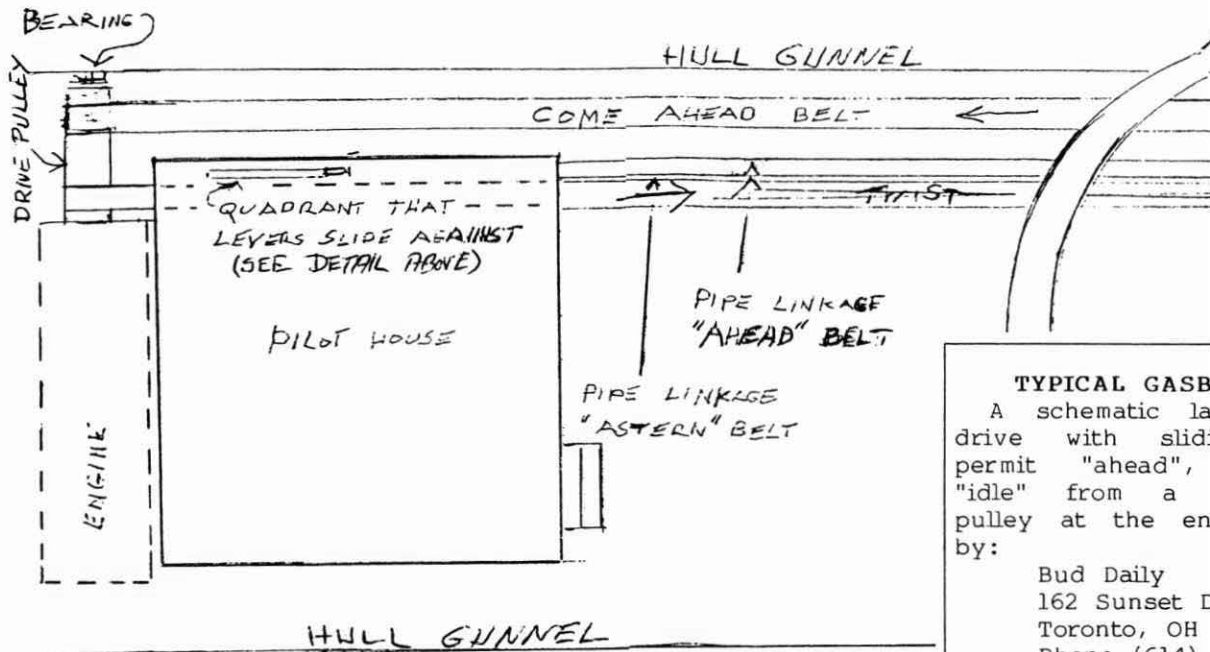 BEARING
HULL GUNNEL
DRIVE PULLEY
COME AHEAD BELT
TWIST
QUADRANT THAT
LEVERS SLIDE AGAINST
(SEE DETAIL ABOVE)
PILOT HOUSE
PIPE LINKAGE
"AHEAD" BELT
PIPE LINKAGE
"ASTERN" BELT
ENGINE
HULL GUNNEL
TYPICAL GASB
A schematic la
drive with slidi
permit "ahead",
"idle" from a
pulley at the en
by:
Bud Daily
162 Sunset D
Toronto, OH
Phone (614)